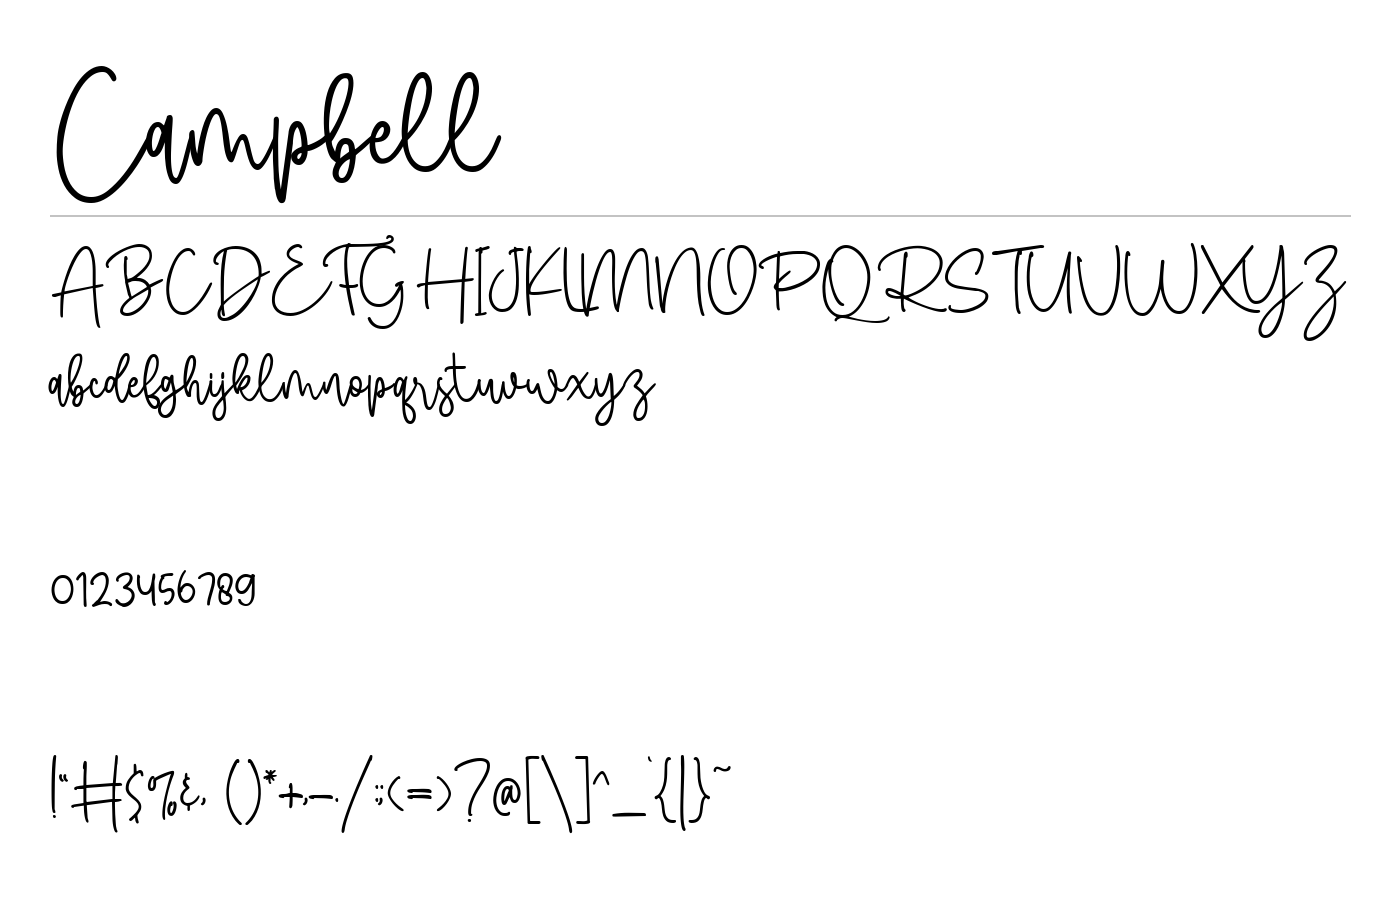 Campbell
ABCDEFGHIJKLMNOPQRSTUVWXYZ
abcdefghijklmnopqrstuvwxyz
0123456789
!"#$%&, ()*+,-./:;<=>?@[\]^_`{|}~